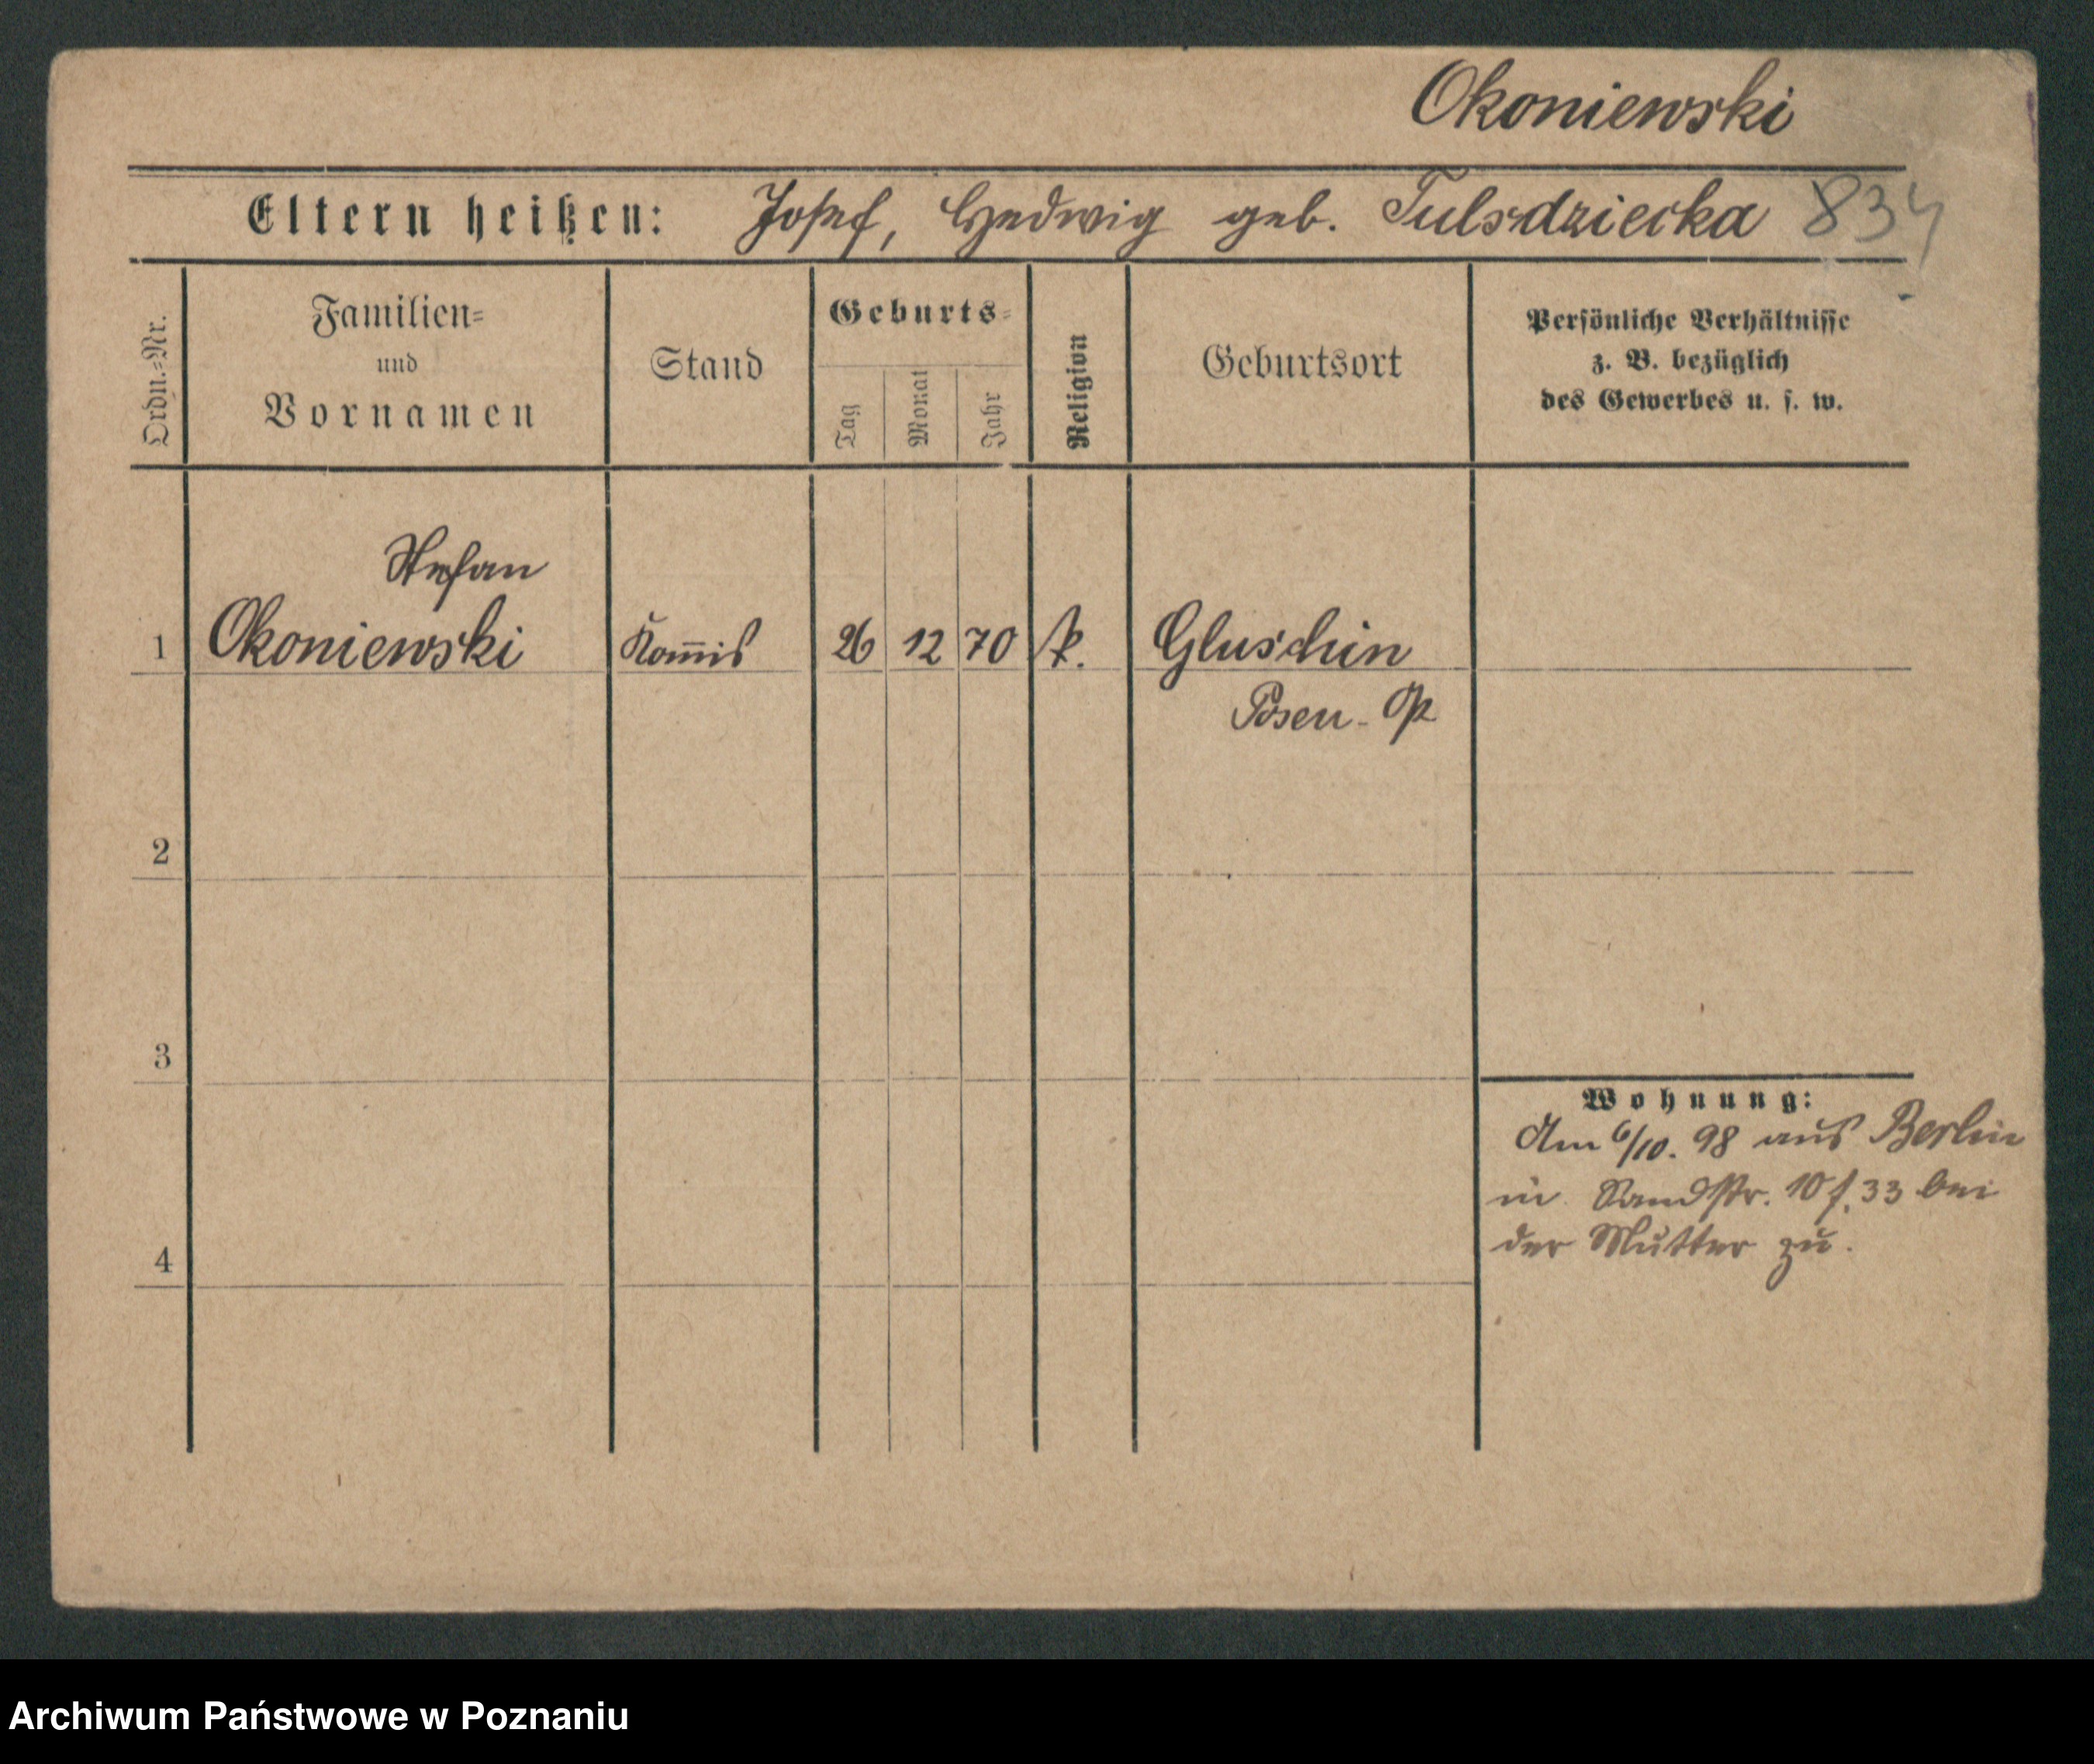 Okoniewski
Eltern heißen: Josef, Hedwig geb. Tulsdziecka 834
Ordn.=Nr.
Familien=
und
Vornamen
Stand
Geburts=
Tag
Monat
Jahr
Religion
Geburtsort
Persönliche Verhältnisse
z. B. bezüglich
des Gewerbes u. s. w.
Stefan
1 Okoniewski Kom̅is 26 12 70 k. Gluschin
Posen-
2
3
4
Wohnung:
Am 6/10. 98 aus Berlin
in Sandstr. 10 f. 33 bei
der Mutter zu.
Archiwum Państwowe w Poznaniu